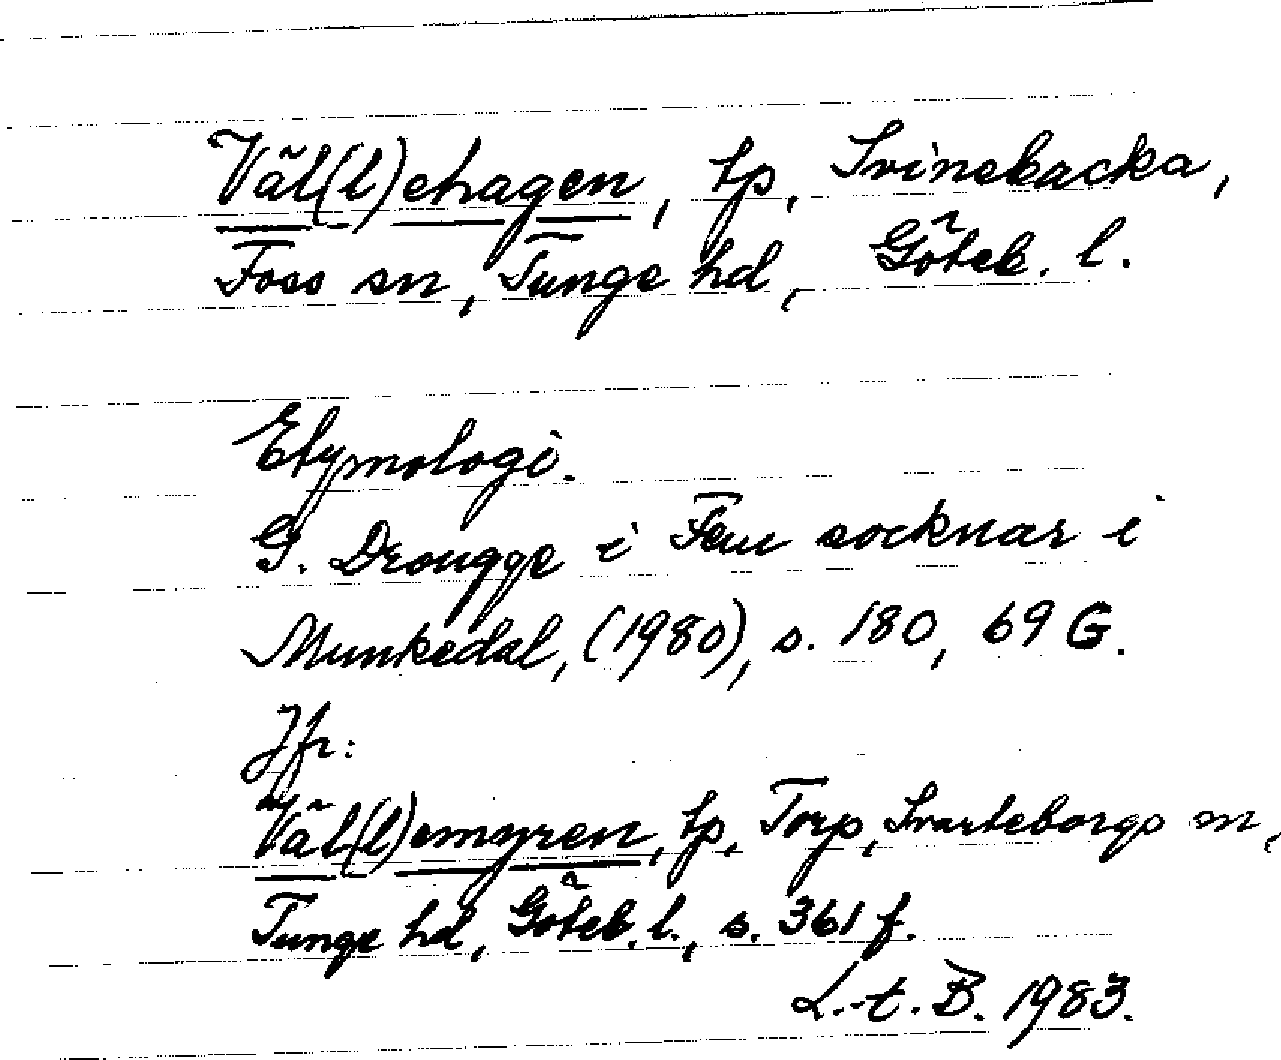 Väl(l)ehagen, tp, Svinebacka,
Foss sn, Tunge hd, Göteb. l.
Etymologi.
G. Drougge i Fem socknar i
Munkedal, (1980), s. 180, 69 G.
Jfr:
Väl(l)emyren, tp, Torp, Svarteborgs sn,
Tunge hd, Göteb. l., s. 361 f.
L.-t. B. 1983.